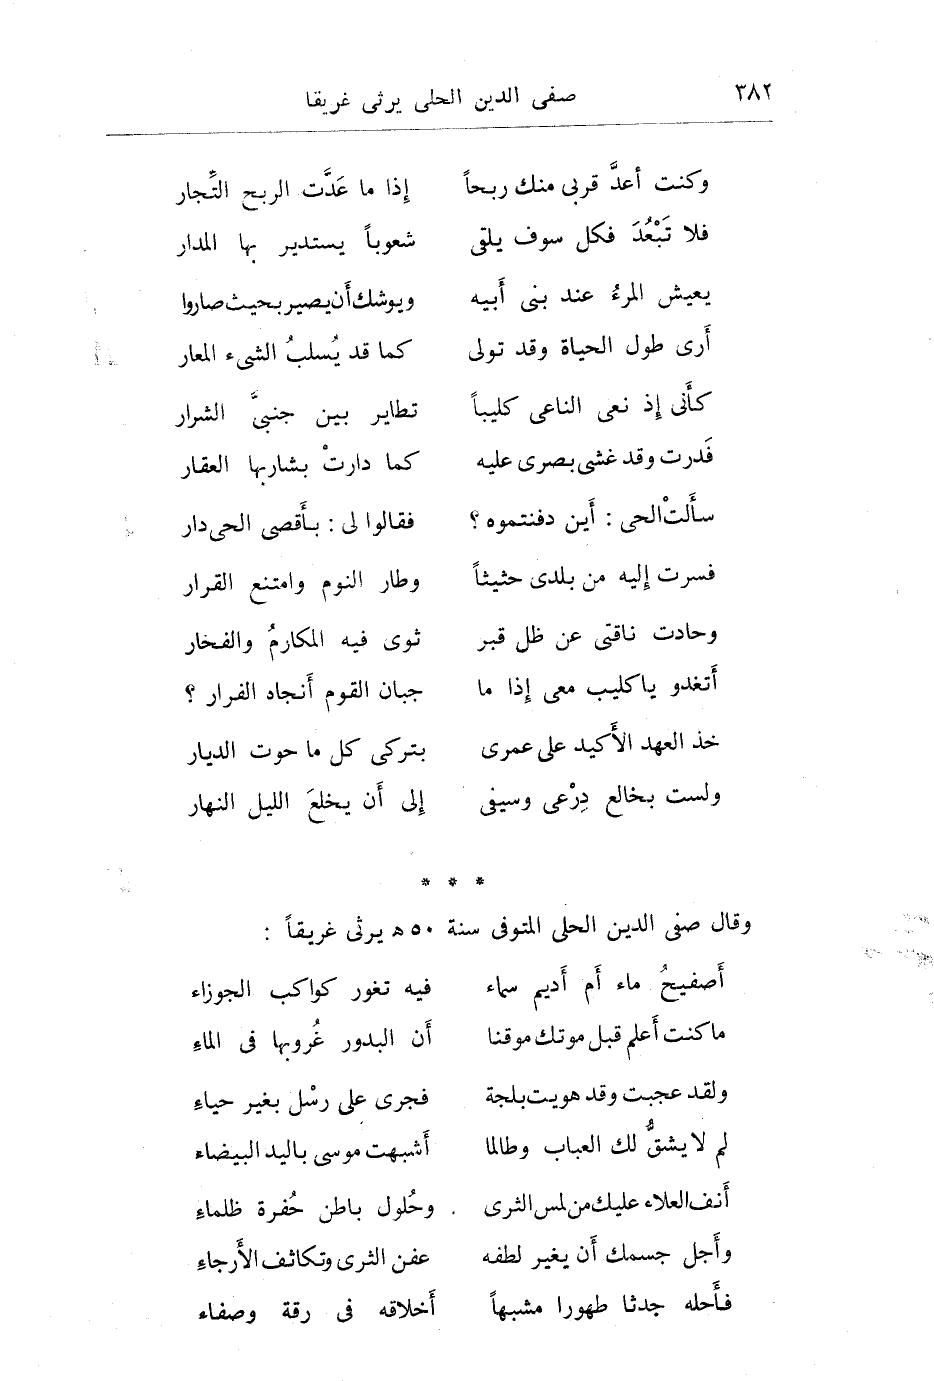 ٣٨٢ صفى الدين الحلى يرثى غريقا
وكنت أعدَّ قربى منك ربحاً إذا ما عَدَّت الربح التِّجار
فلا تَبْعُدَ فكل سوف يلقى شعوباً يستدير بها المدار
يعيش المرءُ عند بنى أبيه ويوشك أن يصير بحيث صاروا
أرى طول الحياة وقد تولى كما قد يُسلبُ الشىء المعار
كأنى إذ نعى الناعى كليباً تطاير بين جنبىَّ الشرار
فَدرت وقد غشى بصرى عليه كما دارتْ بشاربها العقار
سألتْ الحى : أين دفنتموه ؟ فقالوا لى : بأقصى الحى دار
فسرت إليه من بلدى حثيثاً وطار النوم وامتنع القرار
وحادت ناقتى عن ظل قبر ثوى فيه المكارمُ والفخار
أتغدو ياكليب معى إذا ما جبان القوم أنجاه الفرار ؟
خذ العهد الأكيد على عمرى بتركى كل ما حوت الديار
ولست بخالع دِرْعى وسيفى إلى أن يخلعَ الليل النهار
* * *
وقال صفى الدين الحلى المتوفى سنة ٥٠ ه يرثى غريقاً :
أصفيحُ ماء أم أديم سماء فيه تغور كواكب الجوزاء
ما كنت أعلم قبل موتك موقنا أن البدور غُروبها فى الماءِ
ولقد عجبت وقد هويت بلجة فجرى على رسْل بغير حياءِ
لم لا يشقُّ لك العباب وطالما أشبهت موسى باليد البيضاء
أنف العلاء عليك من لمس الثرى وحُلول باطن حُفرة ظلماءِ
وأجل جسمك أن يغير لطفه عفن الثرى وتكاثف الأرجاءِ
فأحله جدثا طهورا مشبهاً أخلاقه فى رقة وصفاء